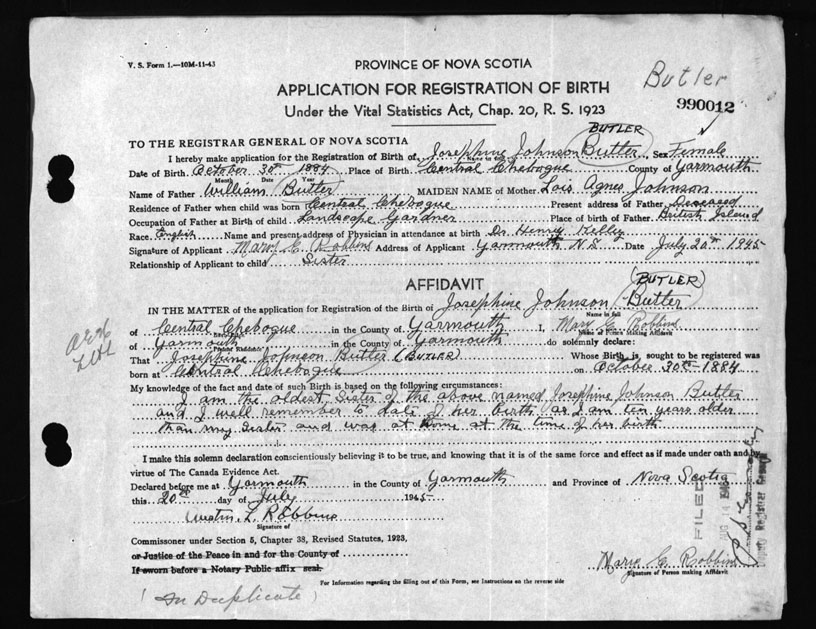 V. S. Form 1.—10M-11-43
PROVINCE OF NOVA SCOTIA
Butler
APPLICATION FOR REGISTRATION OF BIRTH
990012
Under the Vital Statistics Act, Chap. 20, R. S. 1923
BUTLER
TO THE REGISTRAR GENERAL OF NOVA SCOTIA
I hereby make application for the Registration of Birth of Josephine Johnson Butler Sex Female
Date of Birth October 30th 1884 Place of Birth Central Chebogue County of Yarmouth
Month Date Year
Name of Father William Butler MAIDEN NAME of Mother Lois Agnes Johnson
Residence of Father when child was born Central Chebogue Present address of Father Deceased
Occupation of Father at Birth of child Landscape Gardner Place of birth of Father British Island
Race English Name and present address of Physician in attendance at birth Dr Henry Kelley
Signature of Applicant Mary E Robbins Address of Applicant Yarmouth N.S. Date July 20th 1945
Relationship of Applicant to child Sister
AFFIDAVIT
(BUTLER)
IN THE MATTER of the application for Registration of the Birth of Josephine Johnson Butler
Name in full
of Central Chebogue in the County of Yarmouth I, Mary E Robbins
Name of Person Making Affidavit
of Yarmouth in the County of Yarmouth do solemnly declare:
That Josephine Johnson Butler (BUTLER) Whose Birth is sought to be registered was
born at Central Chebogue on October 30th 1884
My knowledge of the fact and date of such Birth is based on the following circumstances:
I am the oldest Sister of the above named Josephine Johnson Butler
and I well remember to date of her birth as I am ten years older
than my sister and was at home at the time of her birth
I make this solemn declaration conscientiously believing it to be true, and knowing that it is of the same force and effect as if made under oath and by
virtue of The Canada Evidence Act.
Declared before me at Yarmouth in the County of Yarmouth and Province of Nova Scotia
this 20th day of July 1945
Austin L Robbins
Signature of
FILED
AUG 14 1945
Deputy Registrar General
Commissioner under Section 5, Chapter 38, Revised Statutes, 1923,
or Justice of the Peace in and for the County of
If sworn before a Notary Public affix seal.
Mary E Robbins
Signature of Person making Affidavit
For Information regarding the filling out of this Form, see Instructions on the reverse side
(In Duplicate)